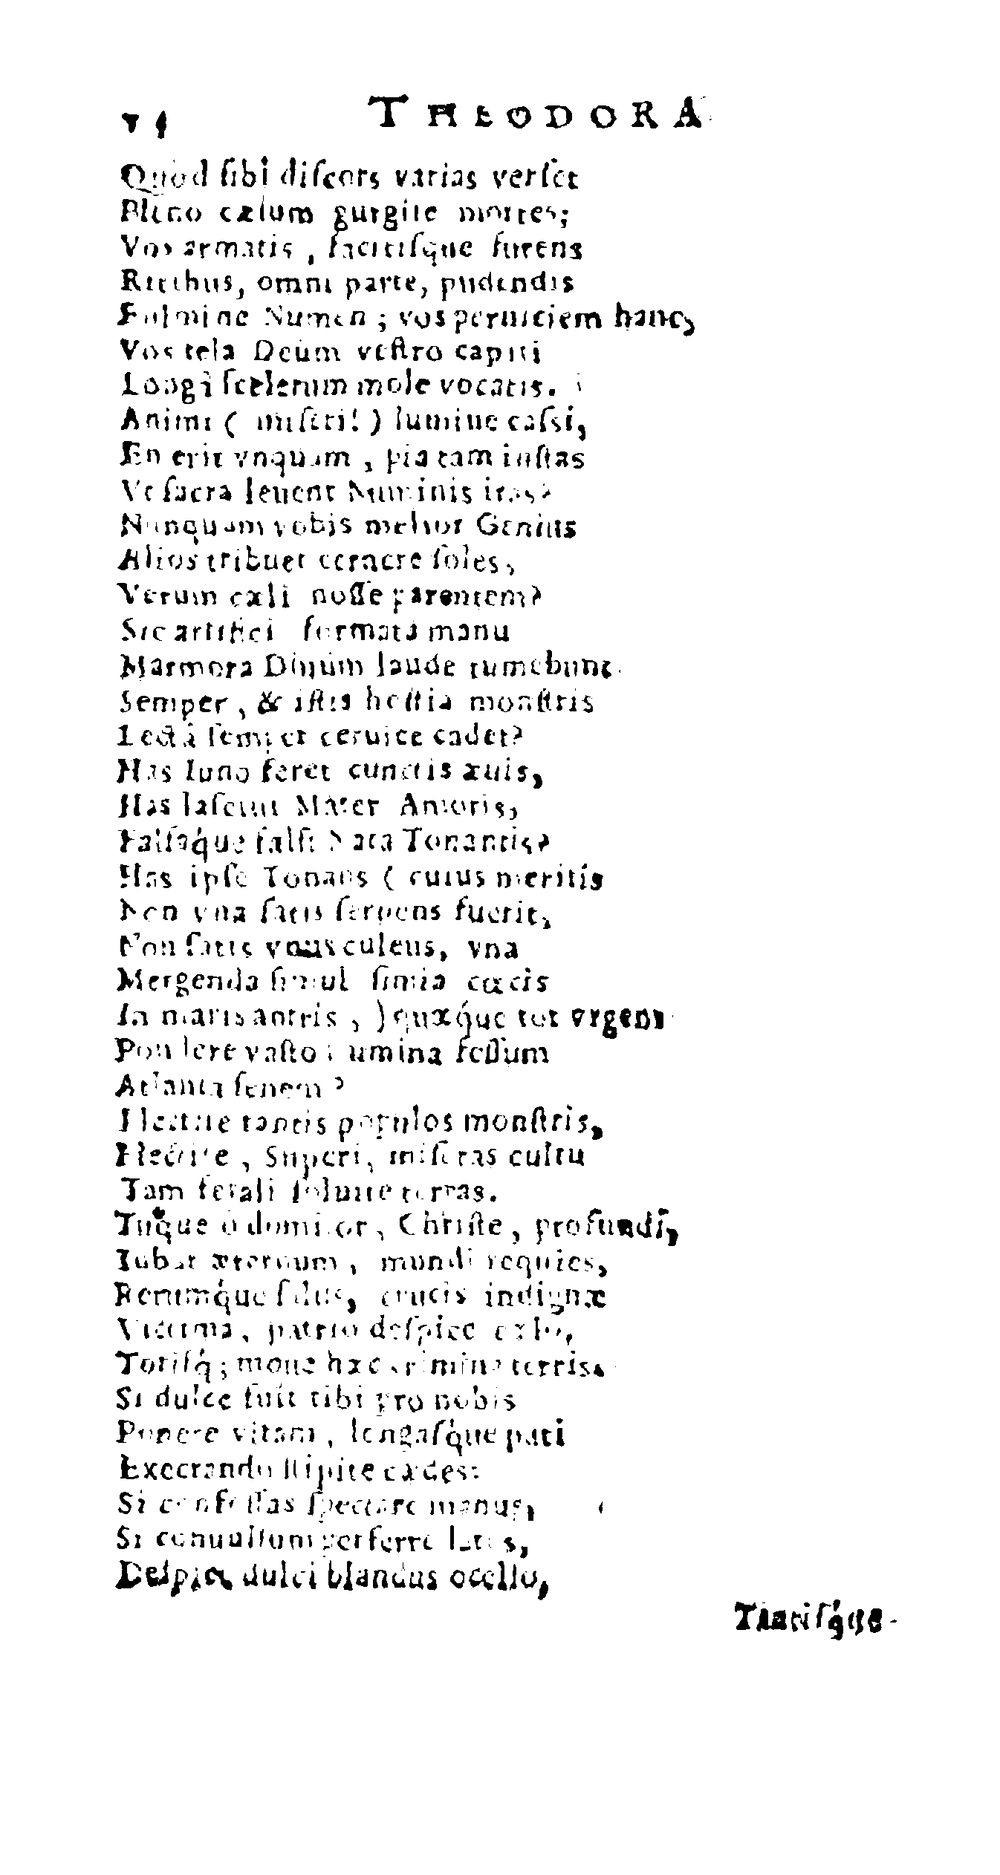 THEODORA
Quod sibi discors varias verset
Pleno cælum gurgite mortes;
Vos armatis, facitisque furens
Ritibus, omni parte, pudendis
Fulmine Numen; vos perniciem hanc,
Vos tela Deûm vestro capiti
Longâ scelerum mole vocatis.
Animi (miseri!) lumine cassi,
En erit vnquam, pia tam iustas
Vt sacra leuent Numinis iras?
Nunquam vobis melior Genius
Alios tribuet cernere soles,
Verum cæli nosse parentem?
Sic artifici formata manu
Marmora Diuûm laude tumebunt
Semper, & istis hostia monstris
Lectâ semper ceruice cadet?
Has Iuno feret cunctis æuis,
Has lasciui Mater Amoris,
Falsáque falsi Nata Tonantis?
Has ipse Tonans (cuius meritis
Non vna satis serpens fuerit,
Non satis vnus culeus, vna
Mergenda simul simia cœcis
In maris antris,) quæq́ue tot vrgent
Pondere vasto numina fessum
Atlanta senem?
Flectite tantis populos monstris,
Flectite, Superi, miseras cultu
Tam ferali soluite terras.
Tuq́ue ô domitor, Christe, profundi,
Iubar æternum, mundi requies,
Rerumq́ue salus, crucis indignæ
Victima, patrio despice cælo,
Totisq́; moue hæc crimina terris.
Si dulce fuit tibi pro nobis
Ponere vitam, longasq́ue pati
Execrando stipite cædes:
Si confossas spectare manus,
Si conuulsum perferre latus,
Despice dulci blandus ocello,